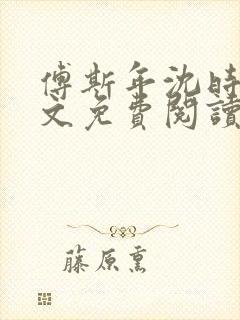 傅斯年沈時
文免費閱讀
藤原熏